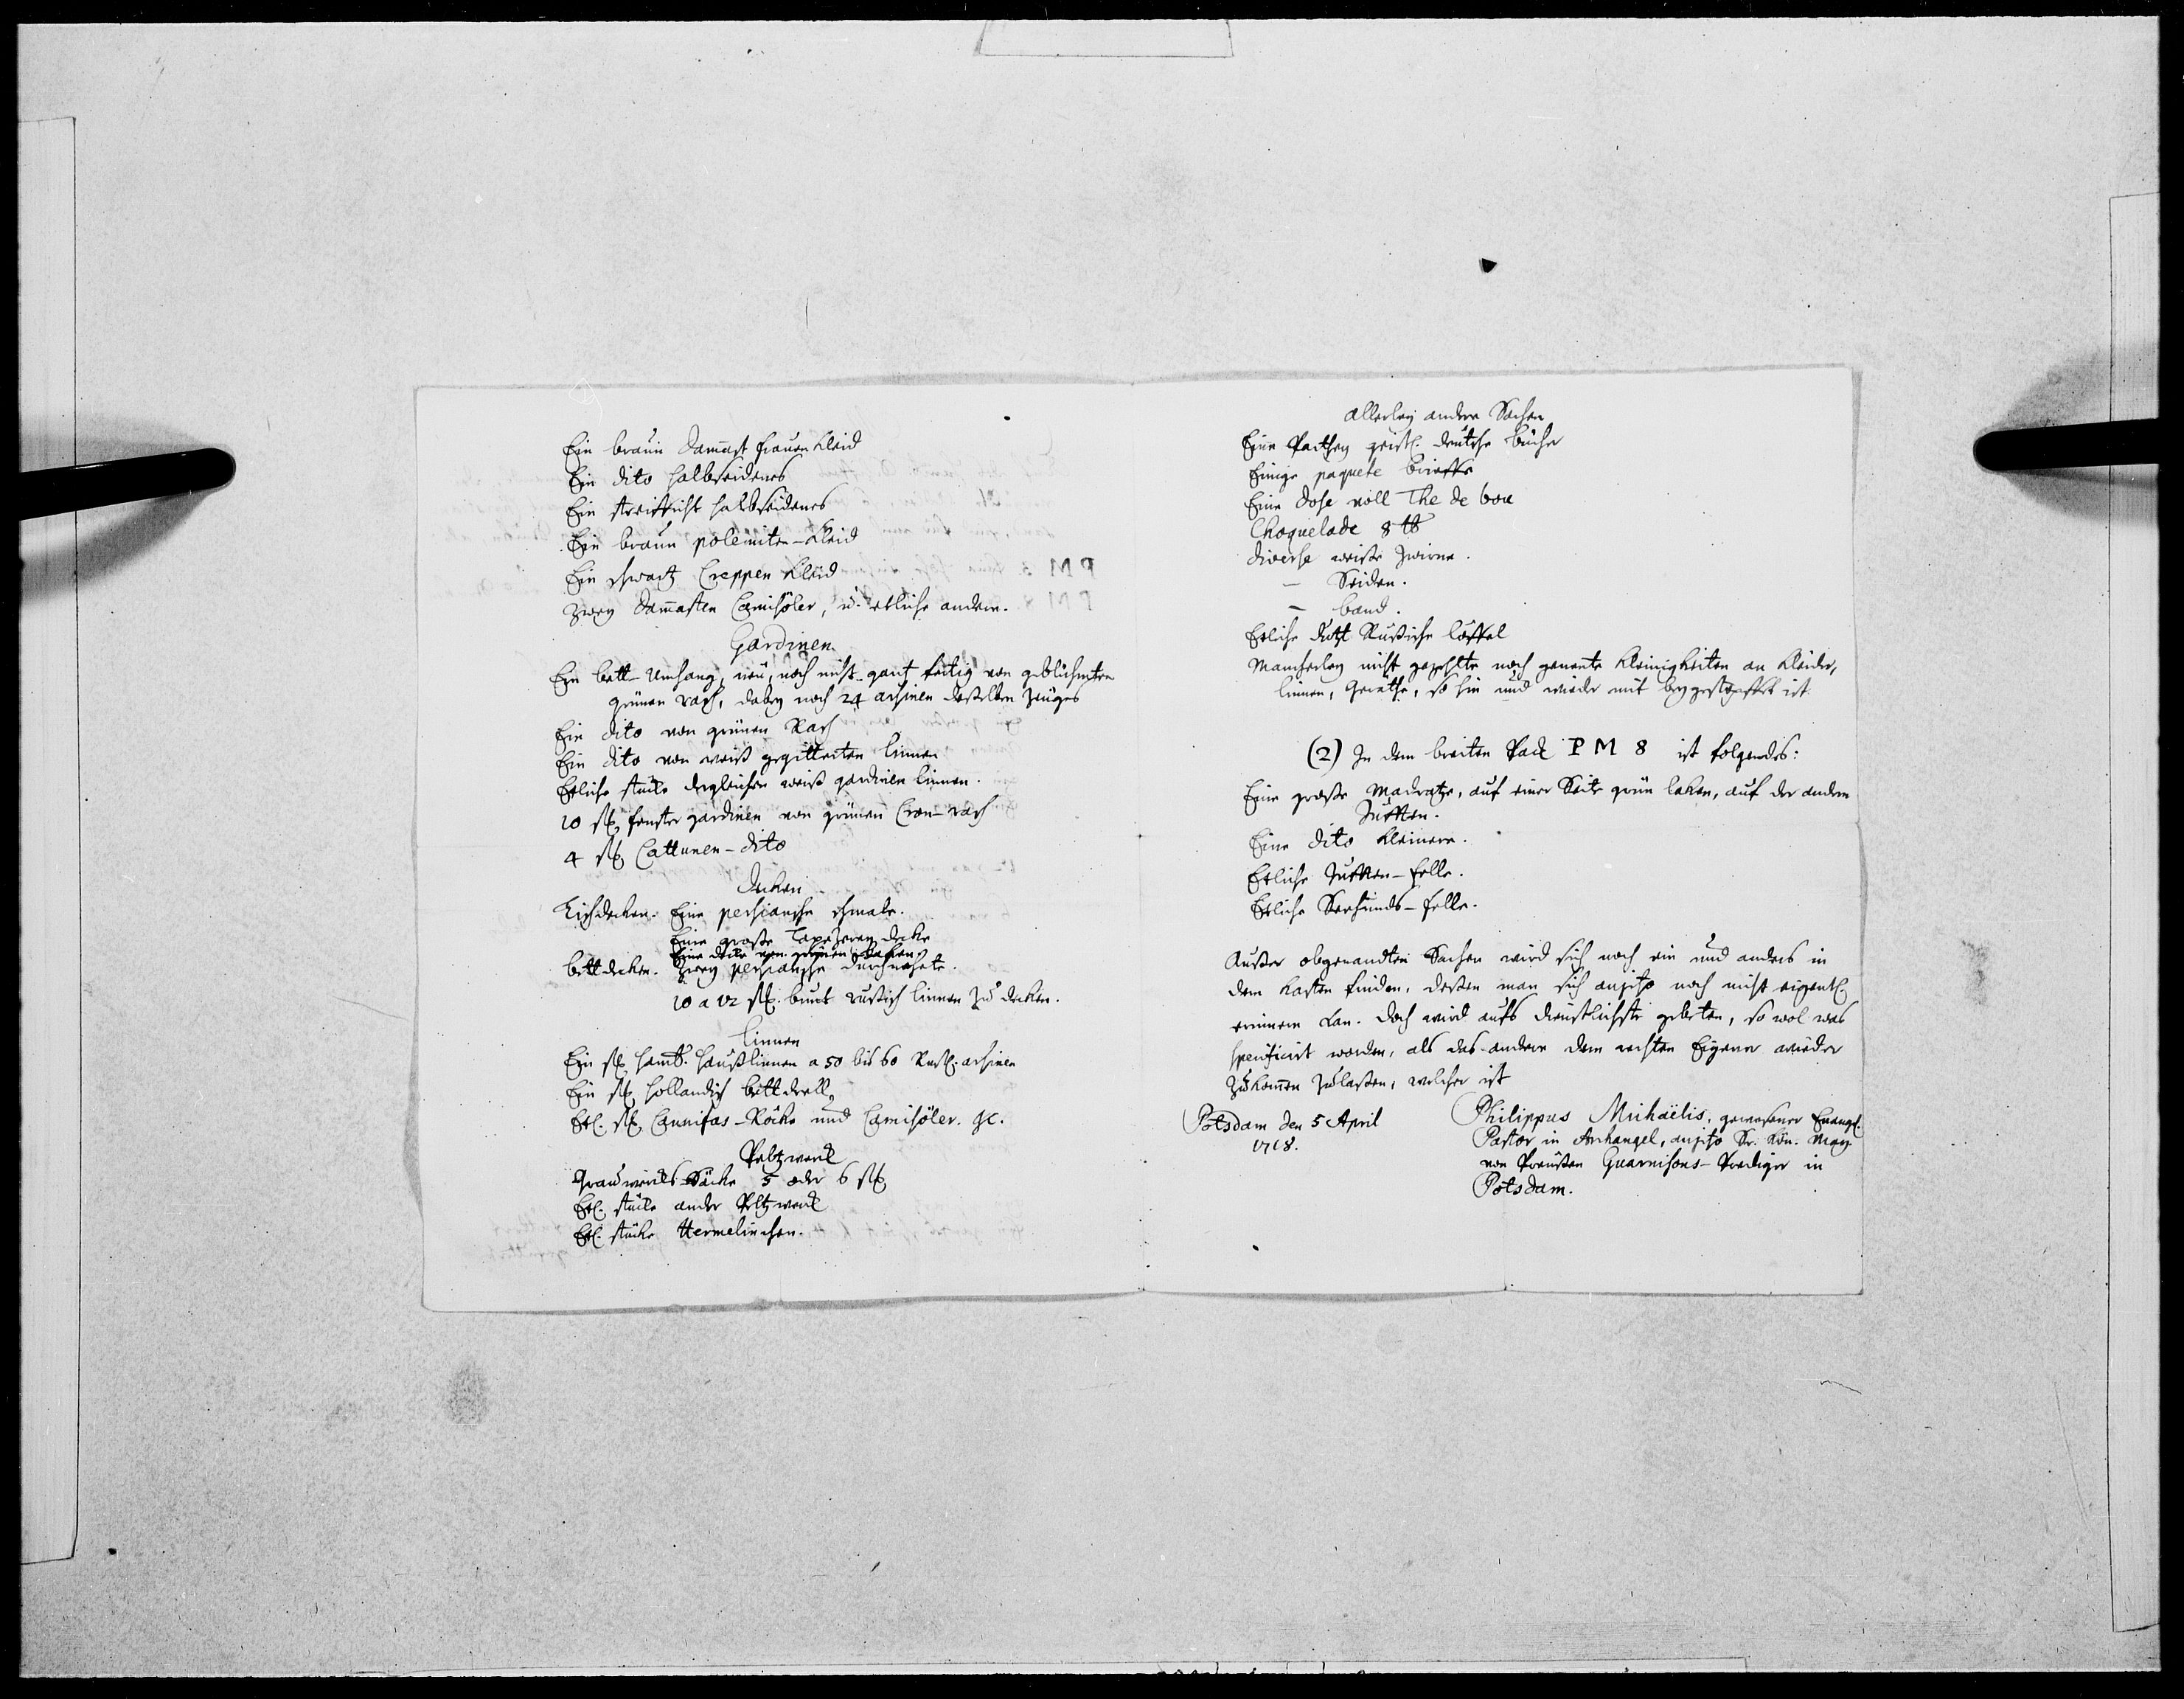 Ein braun Dam̃ast frauen Kleid
Ein dito halbseidenes
Ein streificht halbseidenes
Ein braun polemiten-Kleid
Ein schwartz Creppen Kleid
Zwey Dam̃asten Camisöler, u. etliche andere.
Gardinen.
Ein bett-Umhang, neu, noch nicht gantz fertig von geblühmten
grünen rasch, dabey noch 24 arsinen deßelben Zeuges
Ein dito von grünen Rasch
Ein dito von weiß gegitterten linnen
Etliche stücke dergleichen weiß gardinen linnen.
10 stk fenster gardinen von grünen Cron-rasch
4 stk Cattunen-dito
Decken
Tischdecken. Eine persiansche schmale.
Eine große Tapezerey decke
Eine decke von grünen Laken
bettdecken. Zwey persiansche durchnehete.
10 a 12 stk. bunt rußisch linnen zu decken.
Linnen
Ein stk hamb. haußlinnen a 50 bis 60 Rußl. arsinen
Ein stk hollandisch bettdrell
Etl. stk Cannifas-Röcke und Camisöler. &c.
Peltzwerck
Grauwercks-Säcke 5 oder 6 stk
Etl. stücke ander Peltzwerck
Etl. stücke Hermelinchen.
Allerley andere Sachen
Eine Parthey geistl. deutsche bücher
Einige paquete brieffe
Eine dose voll The de bou
Choquelade 8 ℔
diverse weiße Zwirne.
— Seiden.
— band.
Etliche dutzt Rußische löffel
Mancherley nicht gezehlte noch genente Kleinigkeiten an Kleider,
linnen, Geräthe, so hin und wieder mit beygestopffet ist
(2) In dem breiten Pack P M 8 ist folgendes:
Eine große Madratze, auf einer Seite grün laken, auf der andern
Jufften.
Eine dito kleinere.
Etliche Jufften-felle.
Etliche Seehunds-felle.
Außer obgenandten Sachen wird sich noch ein und anders in
dem Kasten finden, deßen man sich anjetzo noch nicht eigentl.
erinnern kan. Doch wird aufs dienstlichste gebeten, so wol was
specificirt worden, als das andere dem rechten Eigener wieder
zukom̃en zulaßen, welcher ist
Potsdam den 5 April
1718.
Philippus Michaëlis, gewesener Evangl.
Pastor in Archangel, anjetzo Sr. Kön. May.
von Preußen Guarnisons-Prediger in
Potsdam.